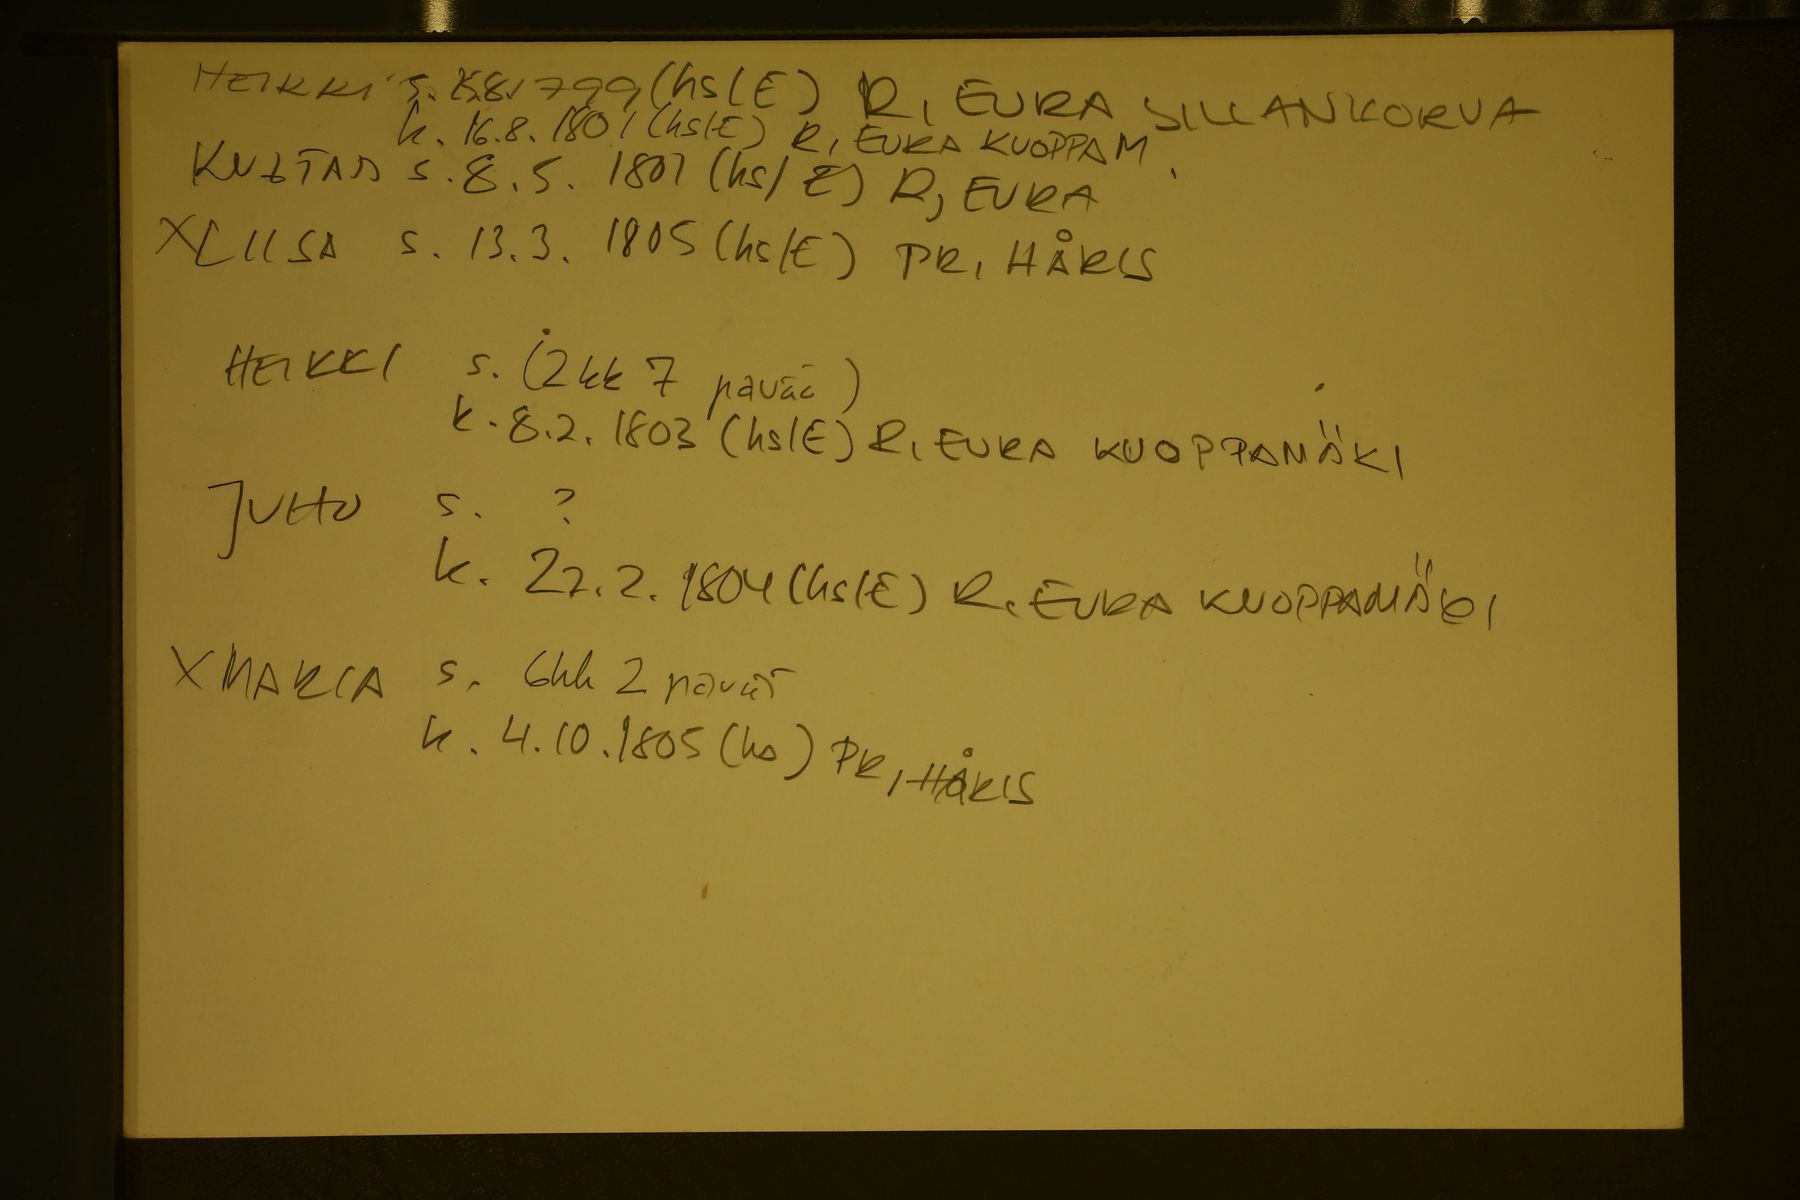 HEIKKI s. 5.8.1799 (hs/E) R, EURA SILLANKORVA
k. 16.8.1801 (hs/E) R, EURA KUOPPAM.
KUSTAA s. 8.5. 1801 (hs/E) R, EURA
X LIISA s. 13.3. 1805 (hs/E) PR, HÅRIS
HEIKKI s. (2 kk 7 päivää)
k. 8.2. 1803 (hs/E) R, EURA KUOPPAMÄKI
JUHO s. ?
k. 22.2. 1804 (hs/E) R, EURA KUOPPAMÄKI
X MARIA s. 6kk 2 päivää
k. 4.10.1805 (hs) PR, HÅRIS